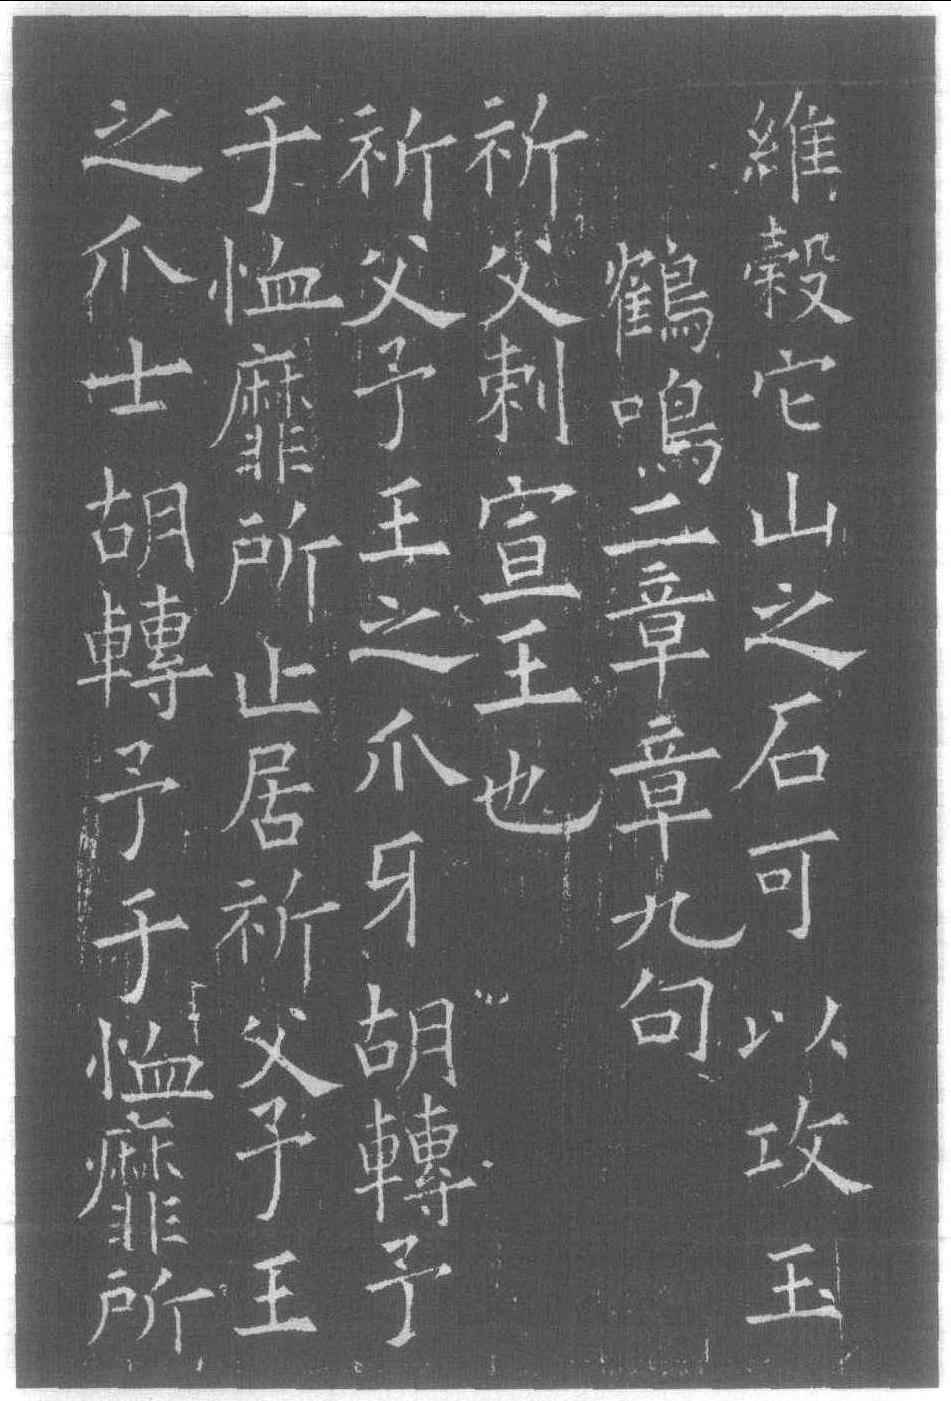 維榖它山之石可以攻玉
鶴鳴二章章九句
祈父刺宣王也
祈父予王之爪牙胡轉予
于恤靡所止居祈父予王
之爪士胡轉予于恤靡所